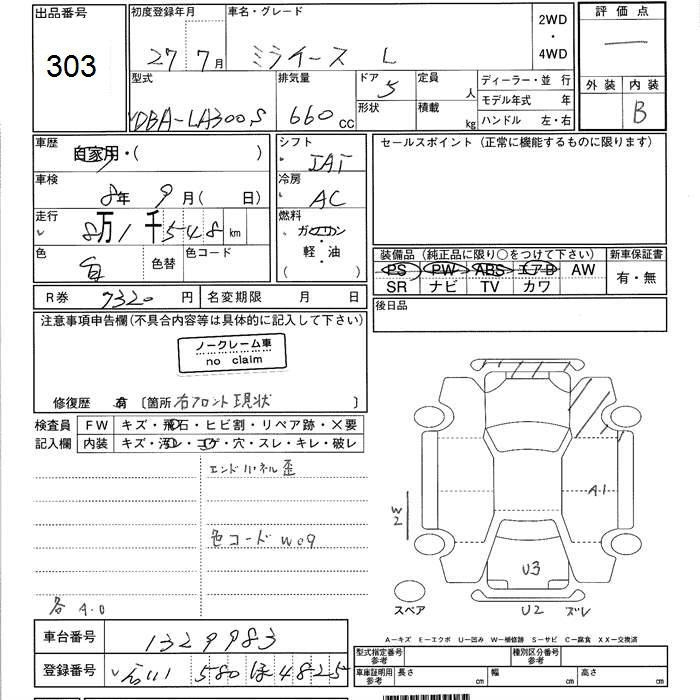 出品番号 初度登録年月 車名・グレード 2WD・4WD 評価点
303 27年 7月 ミライース L
型式 排気量 ドア 5 定員 人 ディーラー・並 行 外装 内装
形状 積載 kg モデル年式 年
DBA-LA300S 660 cc ハンドル 左・右 B
車歴 自家用・( ) シフト IAT セールスポイント (正常に機能するものに限ります)
車検 8年 9月 ( 日) 冷房 AC
走行 8万1千548km 燃料 ガソリン・軽・油 ( )
色 白 色替 色コード 装備品 (純正品に限り○をつけて下さい) 新車保証書
PS PW ABS エアB AW 有・無
SR ナビ TV カワ
R券 7320 円 名変期限 月 日 後日品
注意事項申告欄(不具合内容等は具体的に記入して下さい)
ノークレーム車
no claim
修復歴 有 〔箇所 右フロント現状 〕
検査員 FW キズ・飛石・ヒビ割・リペア跡・X要
記入欄 内装 キズ・汚レ・コゲ・穴・スレ・キレ・破レ
エンドパネル歪
A1
W2
色コード W09
U3
スペア U2 ズレ
各 A.U
A−キズ E−エクボ U−凹み W−補修跡 S−サビ C−腐食 XX−交換済
車台番号 1329983 型式指定番号 参考 種別区分番号 参考
登録番号 580 ほ 4825 車庫証明用 参考 長さ cm 幅 cm 高さ cm